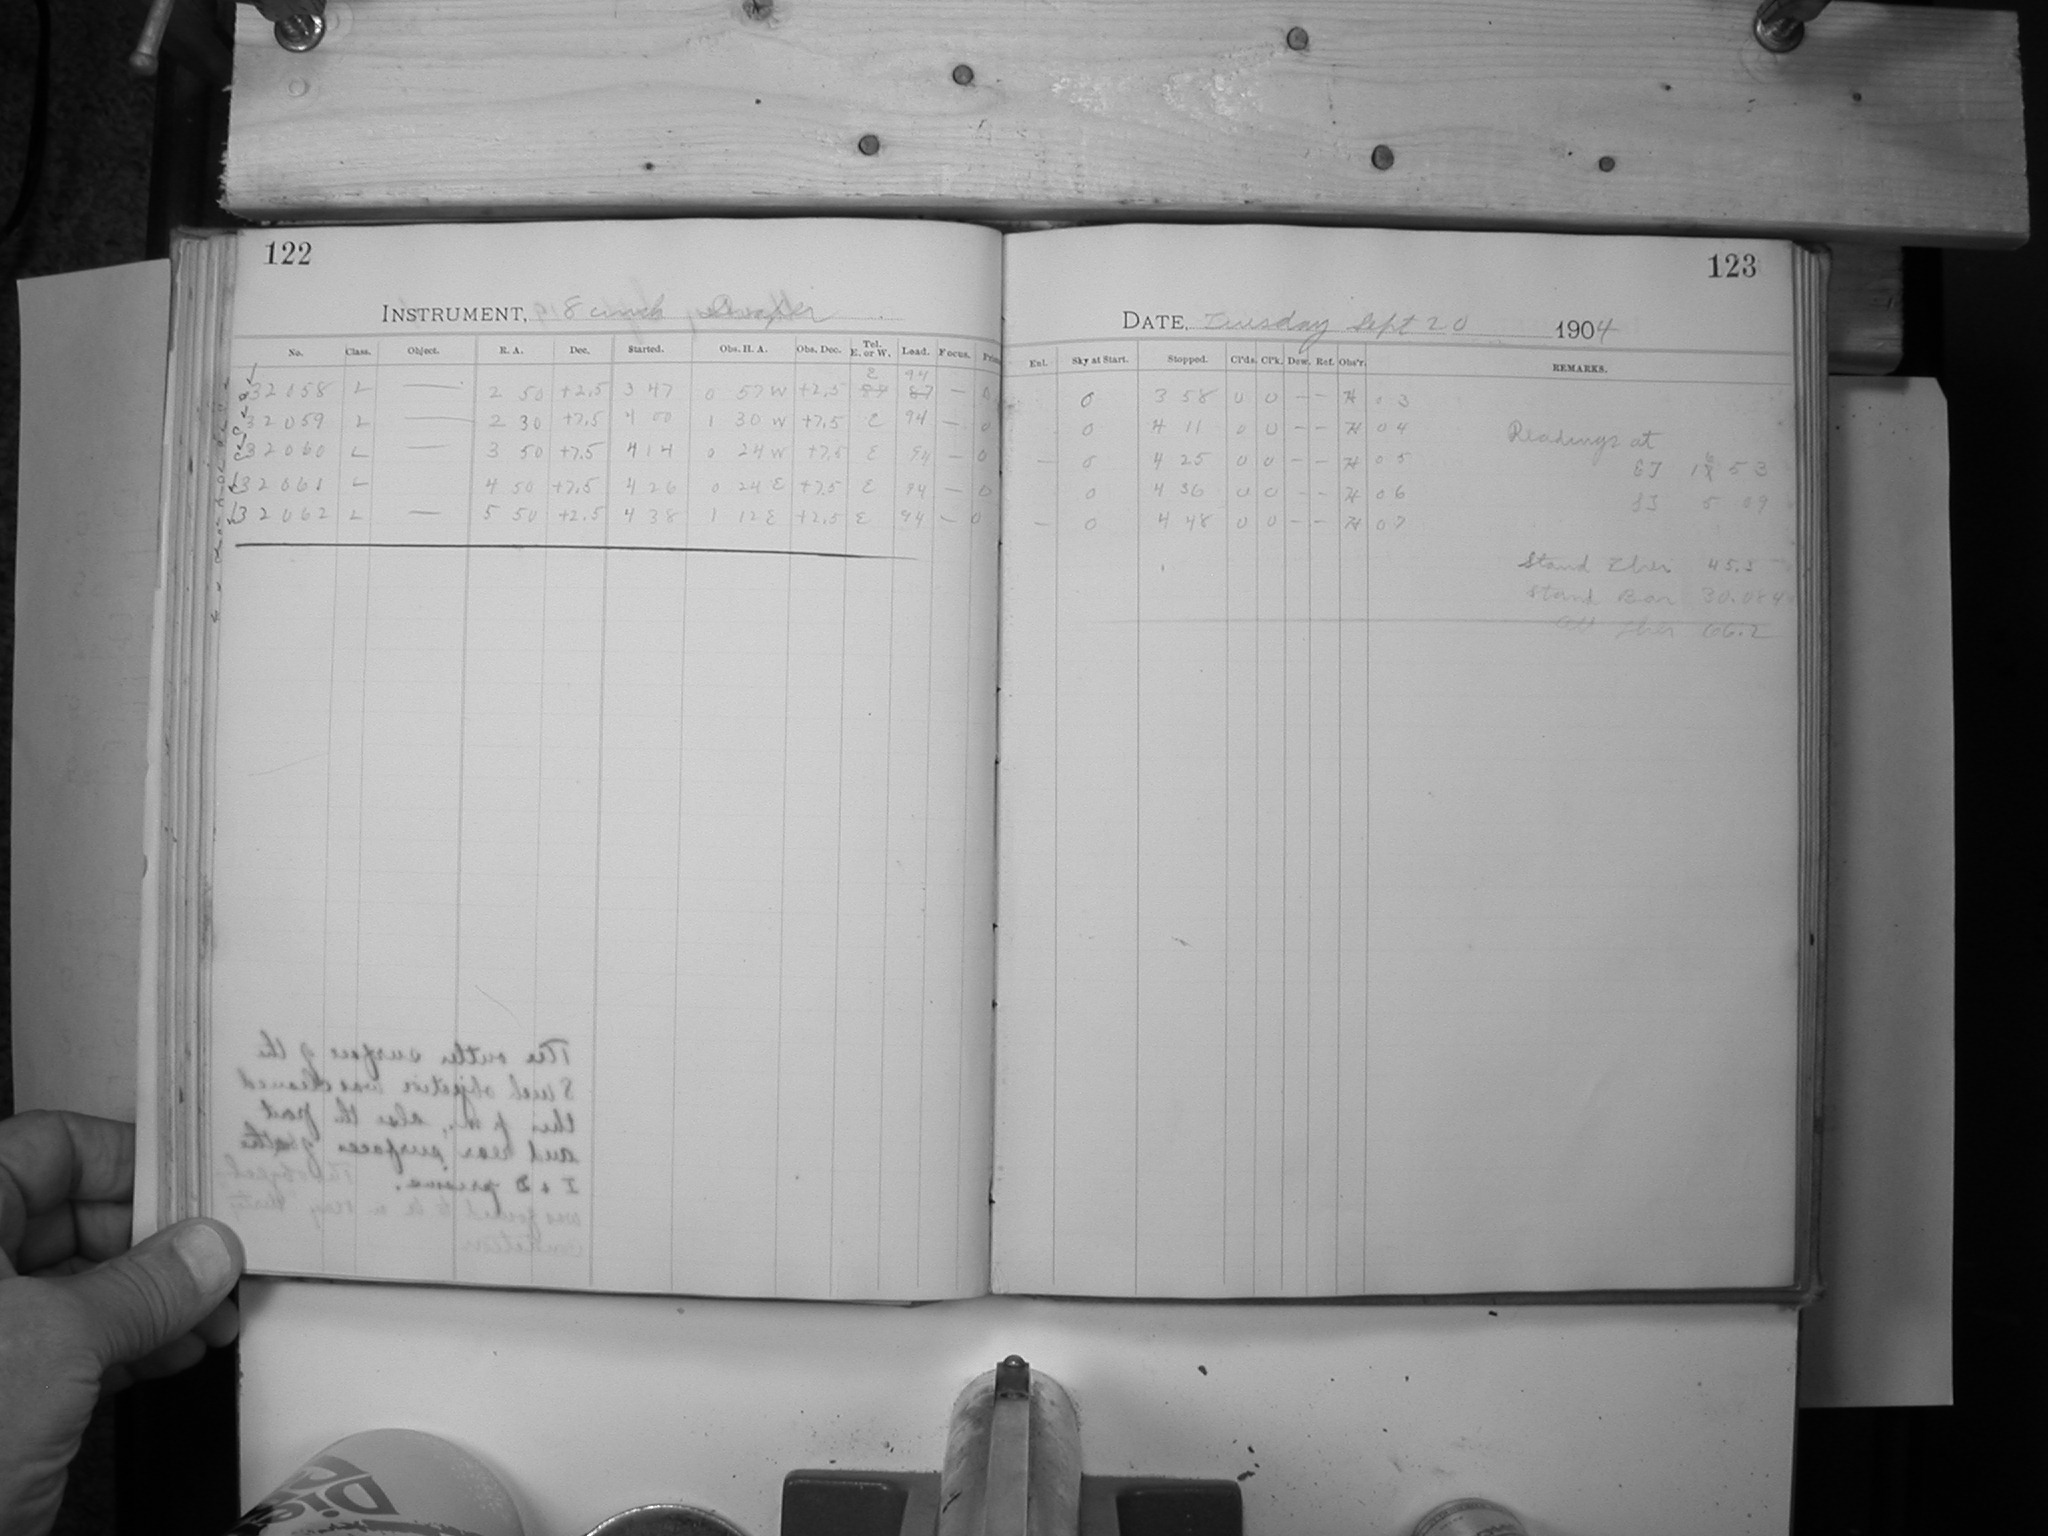 122
INSTRUMENT, 8 inch Draper
No. Class. Object. R. A. Dec. Started. Obs. H. A. Obs. Dec. Tel. E. or W. Lead. Focus.
E 94
32058 L — 2 50 +2.5 3 47 0 57 W +2.5 — 0
32059 L — 2 30 +7.5 4 00 1 30 W +7.5 E 94 — 0
32060 L — 3 50 +7.5 4 14 0 24 W +7.5 E 94 — 0
32061 L 4 50 +7.5 4 26 0 24 E +7.5 E 94 — 0
32062 L — 5 50 +2.5 4 38 1 12 E +2.5 E 94 — 0
The outer surface of the
8 inch objective was cleaned
this p.m., also the front
and rear surfaces of the
I & D prisms. The object
was found to be in very dirty
condition
123
DATE, Tuesday Sept 20 1904
Enl. Sky at Start. Stopped. Cl'ds. Cl'k. Dew. Ref. Obs'r. REMARKS.
0 3 58 0 0 — — H 03
0 4 11 0 0 — — H 04
— 0 4 25 0 0 — — H 05
0 4 36 0 0 — — H 06
— 0 4 48 0 0 — — H 07
Readings at
53
5 09
Stand Ther 45.5
Stand Bar 30.084
Att Ther 66.2